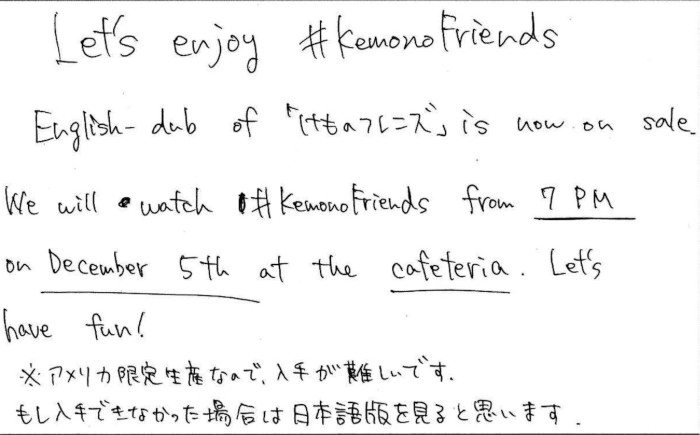 Let's enjoy #KemonoFriends
English-dub of 「けものフレンズ」 is now on sale.
We will watch #KemonoFriends from 7 PM
on December 5th at the cafeteria. Let's
have fun!
※アメリカ限定生産なので、入手が難しいです.
もし入手できなかった場合は日本語版を見ると思います.